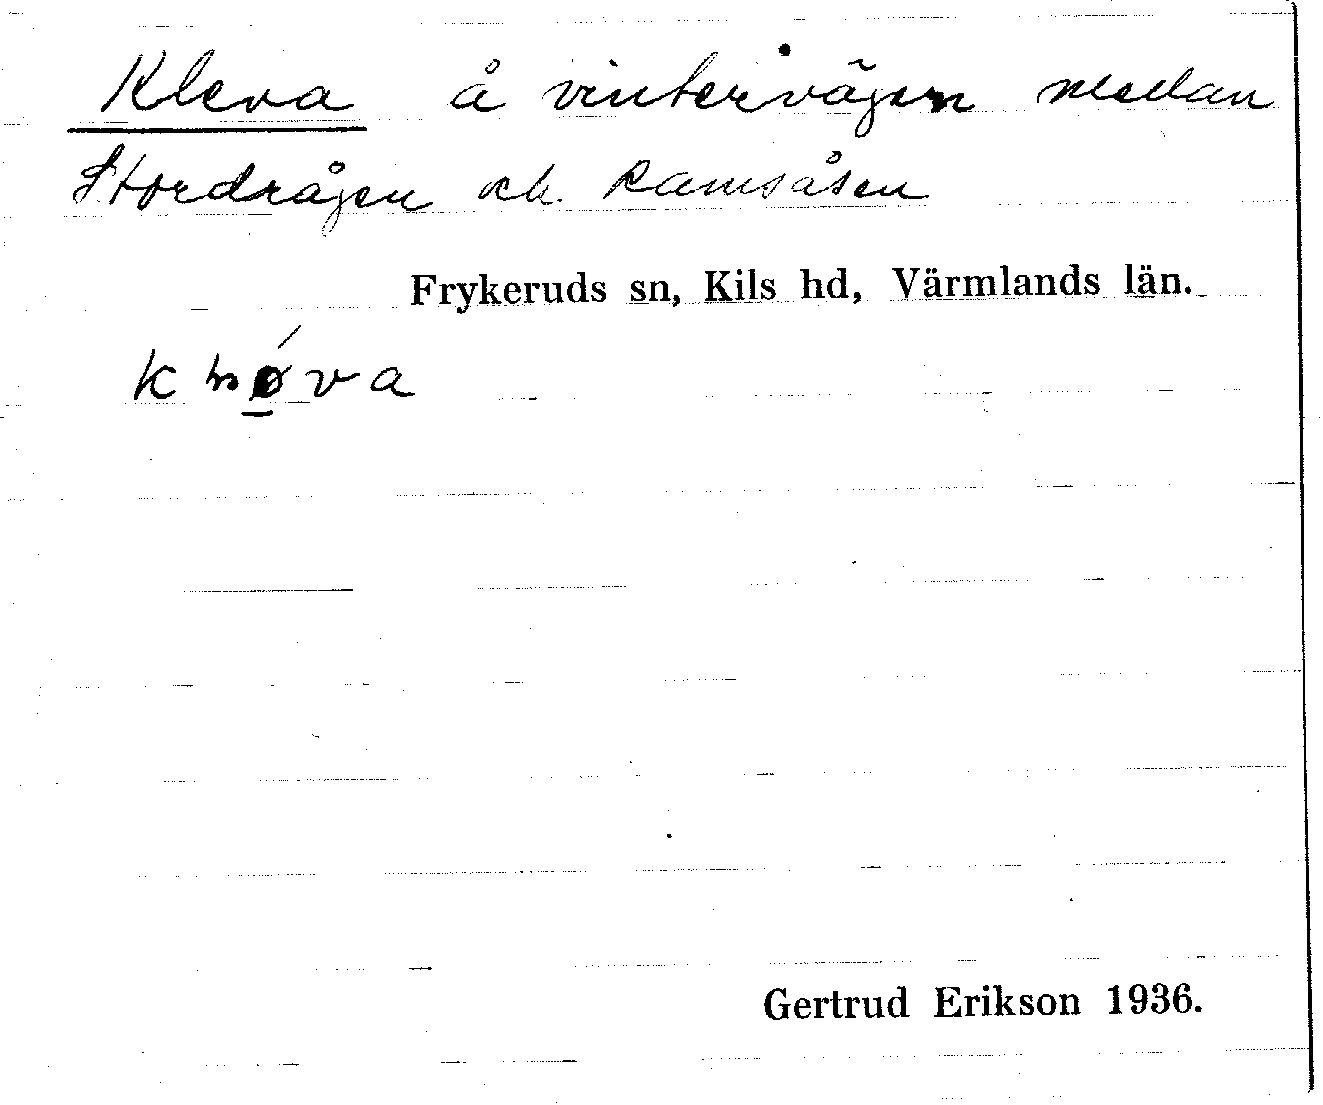 Kleva å vintervägen mellan
Stordrågen och Ramsåsen
Frykeruds sn, Kils hd, Värmlands län.
Gertrud Erikson 1936.